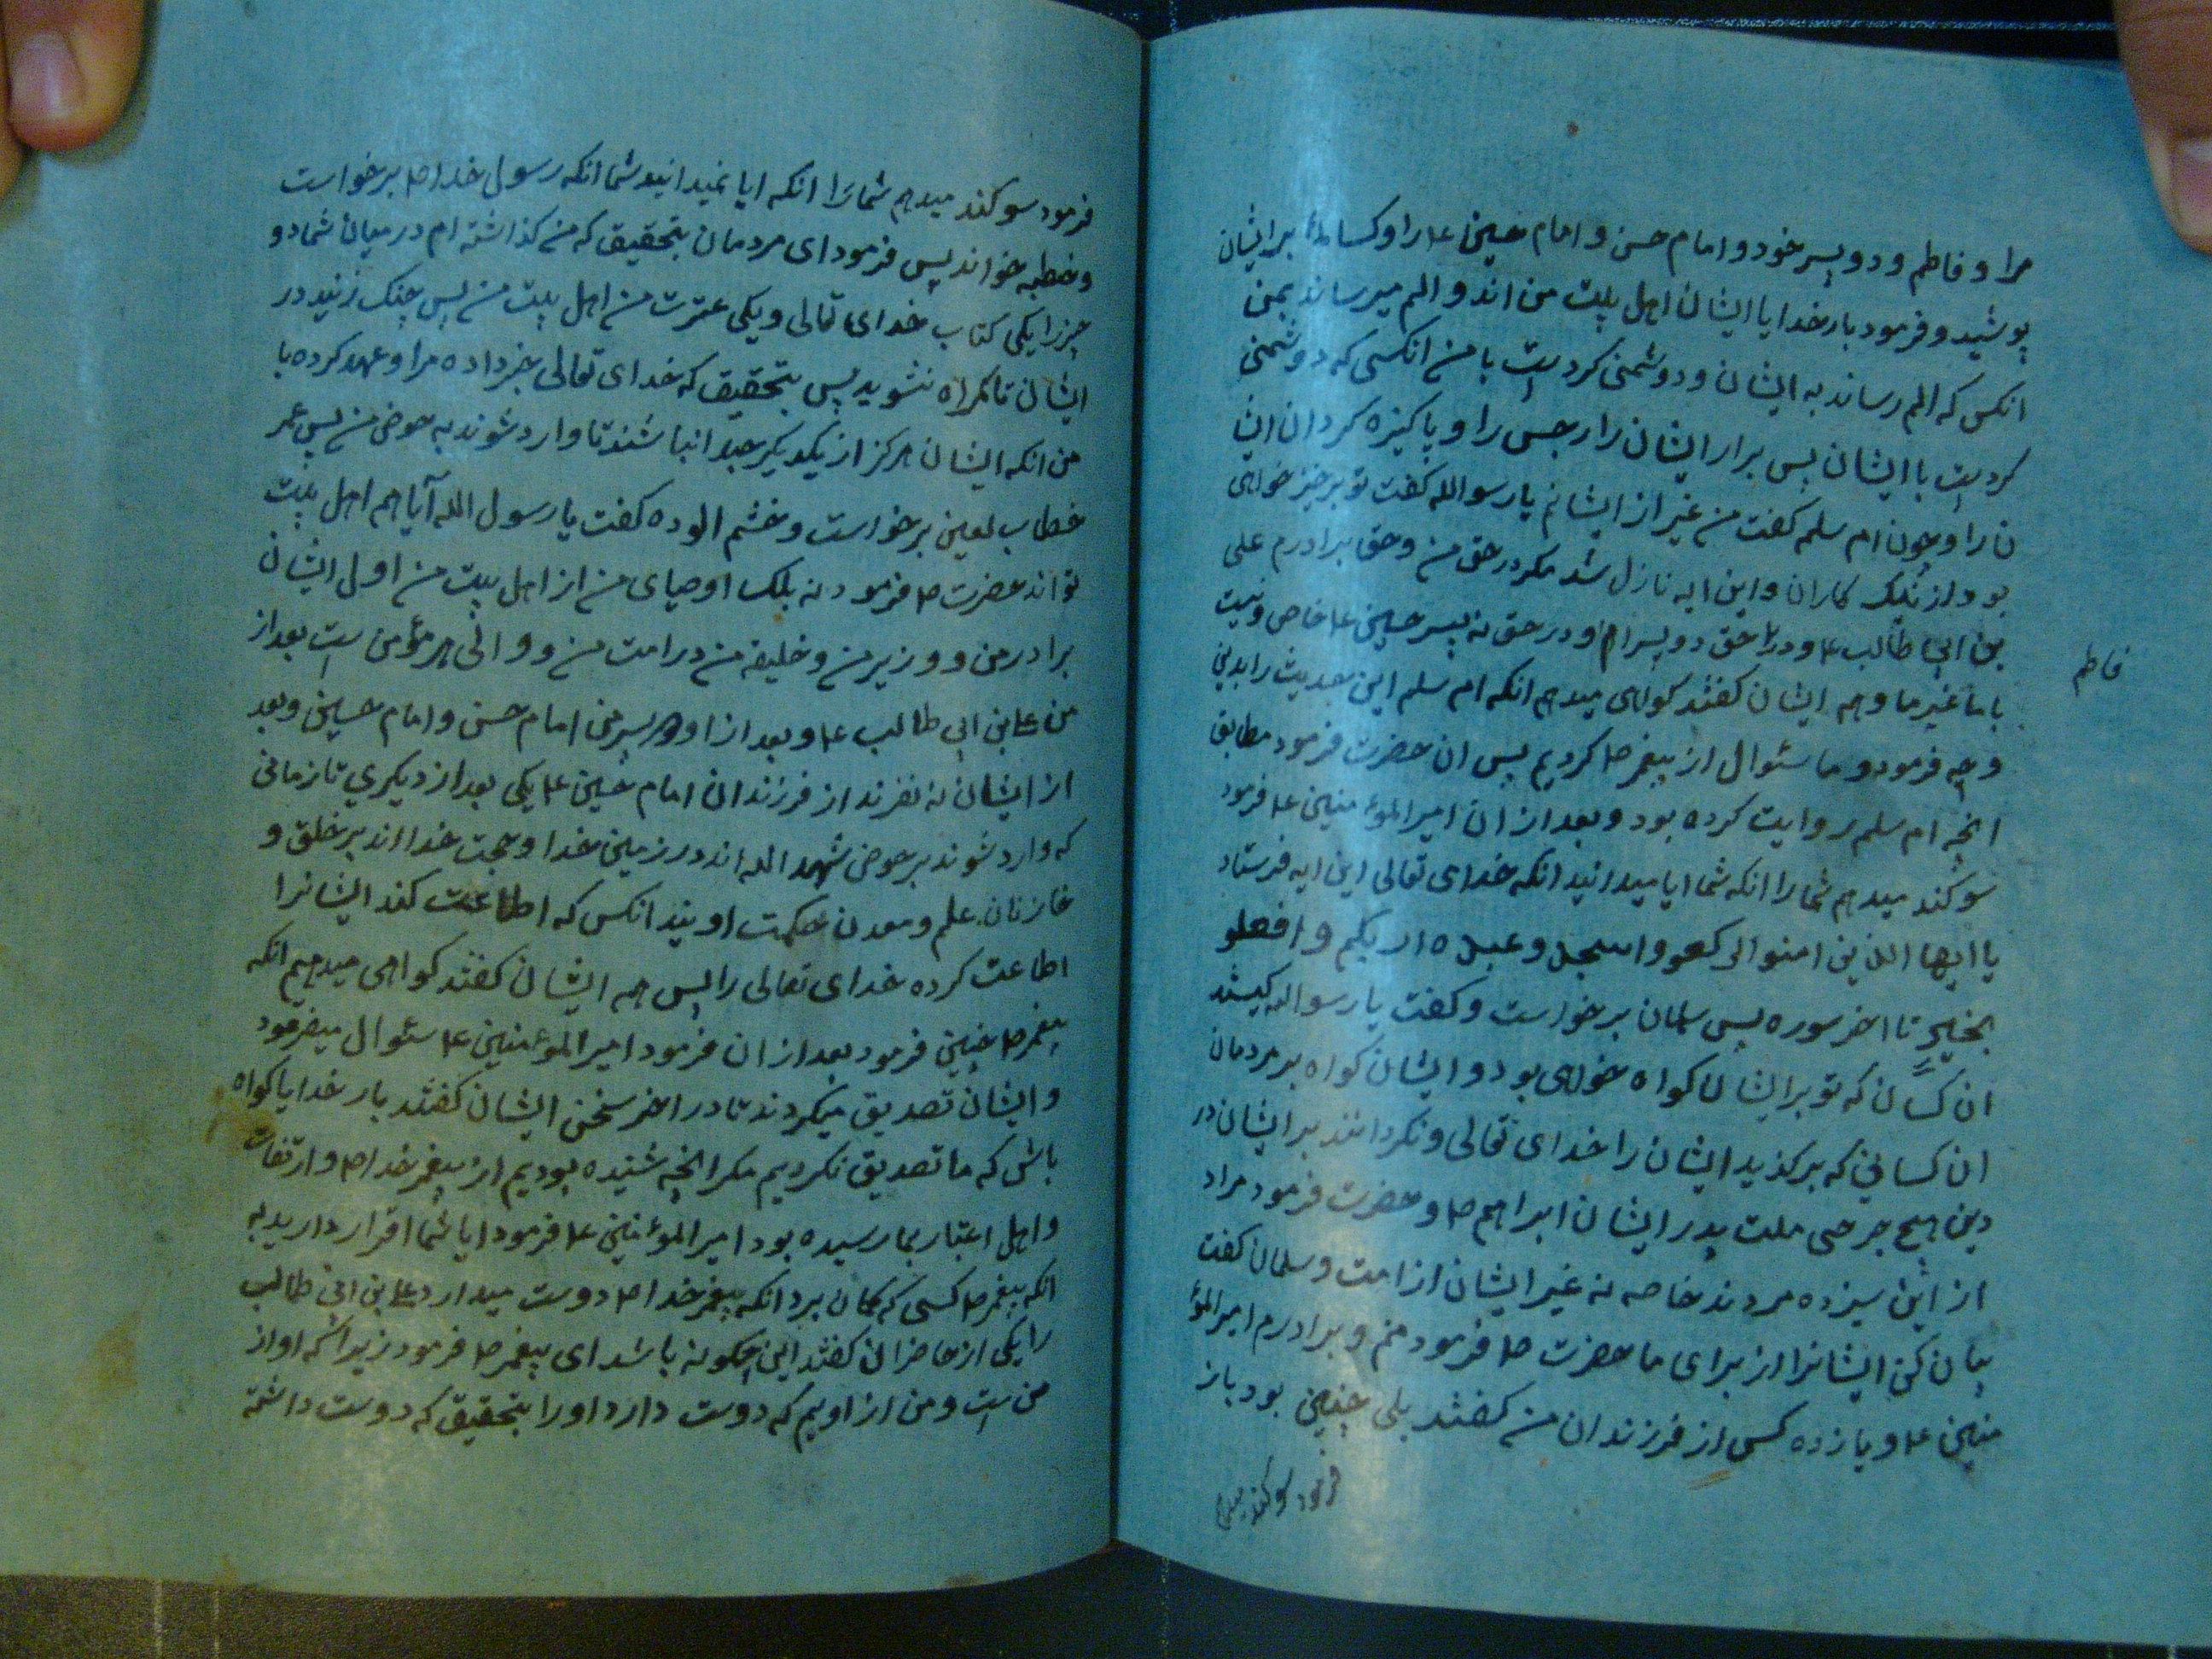 مرا و فاطم و دو پسر خود و امام حسن و امام حسین ع را و کسا برایشان
پوشید و فرمود بار خدایا ایشان اهل بیت من اند و الم میرساند بمن
انکس که الم رساند به ایشان و دوشمنی کردیت با من انکسی که دوشمنی
کردیت با ایشان پس برار ایشان را رجس را و پاکیزه کردان ایشا
ن را و چون ام سلم کفت من غیر از ایشانم یا رسوالله کفت تو بر خیر خواهی
بود از نیک کاران و این ایه نازل شد مکر در حق من و حق برادرم علی
بن ابی طالب ع و در حق دو پسرام و در حق نه پسر حسین ع خاص و نیت
فاطم
با ما غیر ما و هم ایشان کفتند کواهی میدهم انکه ام سلم این حدیث را بدین
وجه فرمود و ما سئوال از پیغمر ص کردیم پس ان حضرت فرمود مطابق
انچه ام سلم روایت کرده بود و بعد از ان امیر المؤمنین ع فرمود
سوکند میدهم شما را انکه شما ایا میدانید انکه خدای تعالی این ایه فرستاد
یا ایها الذین امنوا ارکعو واسجدو وعبده اربکم وافعلو
بخیر تا اخر سوره پس سلمان برخواست و کفت یا رسوالله کیستد
ان کسان که تو برایشان کواه خواهی بود و ایشان کواه بر مردمان
ان کسانی که برکذید ایشان را خدای تعالی و نکرداند برایشان در
دین هیچ جرحی ملت پدر ایشان ابراهیم ص و حضرت فرمود مراد
از این سیزده مردند خاصه نه غیر ایشان از امت و سلمان کفت
بیان کن ایشانرا از برای ما حضرت ص فرمود منم و برادرم امیر المؤ
منین ع و یازده کس از فرزندان من کفتند بلی چنین بود باز
فرمود سوکند میدهم
فرمود سوکند میدهم شما را انکه ایا نمیدانید شما انکه رسول خدا ص برخواست
و خطبه خواند پس فرمود ای مردمان بتحقیق که من کذاشته ام در میان شما دو
چیز را یکی کتاب خدای تعالی و یکی عترت من اهل بیت من پس چنک زنید در
ایشان تا کمراه نشوید پس بتحقیق که خدای تعالی خبر داده مرا و عهد کرده با
من انکه ایشان هرکز از یکدیکر جدا نباشند تا وارد شوند به حوض من پس عمر
خطاب لعین برخواست و خشم الوده کفت یا رسول الله آیا هم اهل بیت
تو اند حضرت ص فرمود نه بلک اوصیای من از اهل بیت من اول ایشان
برادر من و وزیر من و خلیفه من در امت من و والی هر مؤمن است بعد از
من علی بن ابی طالب ع و بعد از او دو پسر من امام حسن و امام حسین و بعد
از ایشان نه نفرند از فرزندان امام حسین ع یکی بعد از دیکری تا زمانی
که وارد شوند بر حوض شهد الله اند در زمین خدا و حجت خدا اند بر خلق و
خازنان علم و معدن حکمت اویند انکس که اطاعت کند ایشانرا
اطاعت کرده خدای تعالی را پس هم ایشان کفتند کواهی میدهیم انکه
پیغمر ص چنین فرمود بعد از ان فرمود امیر المؤمنین ع سئوال میفرمود
و ایشان تصدیق میکردند تا در اخر سخن ایشان کفتند بار خدایا کواه
باش که ما تصدیق نکردیم مکر انچه شنیده بودیم از پیغمر خدا ص و از ثقات
و اهل اعتبار بما رسیده بود امیر المؤمنین ع فرمود ایا شما اقرار دارید به
انکه پیغمر ص کسی که کمان برد انکه پیغمر خدا ص دوست میدارد علی بن ابی طالب
را یکی از حاضران کفتند این چکونه باشد ای پیغمر ص فرمود زیرا که او از
من است و من از اویم که دوست دارد او را بتحقیق که دوست داشته